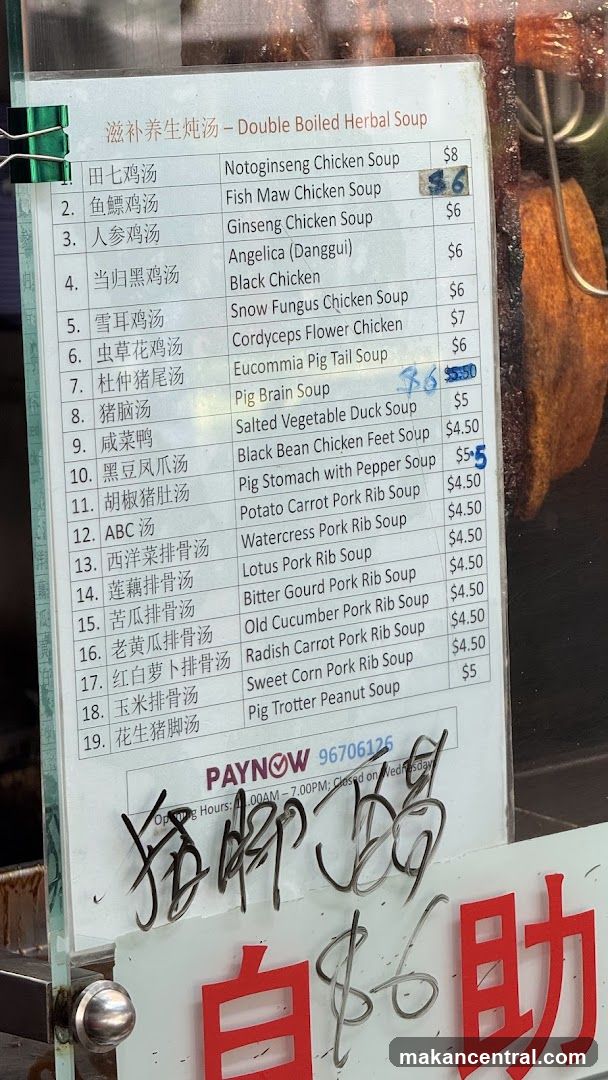 滋补养生炖汤 – Double Boiled Herbal Soup
1. 田七鸡汤 Notoginseng Chicken Soup $8
2. 鱼鳔鸡汤 Fish Maw Chicken Soup $6
3. 人参鸡汤 Ginseng Chicken Soup $6
4. 当归黑鸡汤 Angelica (Danggui) Black Chicken $6
5. 雪耳鸡汤 Snow Fungus Chicken Soup $6
6. 虫草花鸡汤 Cordyceps Flower Chicken $7
7. 杜仲猪尾汤 Eucommia Pig Tail Soup $6
8. 猪脑汤 Pig Brain Soup $6
9. 咸菜鸭 Salted Vegetable Duck Soup $5
10. 黑豆凤爪汤 Black Bean Chicken Feet Soup $4.50
11. 胡椒猪肚汤 Pig Stomach with Pepper Soup $5.5
12. ABC 汤 Potato Carrot Pork Rib Soup $4.50
13. 西洋菜排骨汤 Watercress Pork Rib Soup $4.50
14. 莲藕排骨汤 Lotus Pork Rib Soup $4.50
15. 苦瓜排骨汤 Bitter Gourd Pork Rib Soup $4.50
16. 老黄瓜排骨汤 Old Cucumber Pork Rib Soup $4.50
17. 红白萝卜排骨汤 Radish Carrot Pork Rib Soup $4.50
18. 玉米排骨汤 Sweet Corn Pork Rib Soup $4.50
19. 花生猪脚汤 Pig Trotter Peanut Soup $5
PAYNOW 96706126
Opening Hours: 11.00AM – 7.00PM; Closed on Wednesday
猪脚
$6
自助
makancentral.com